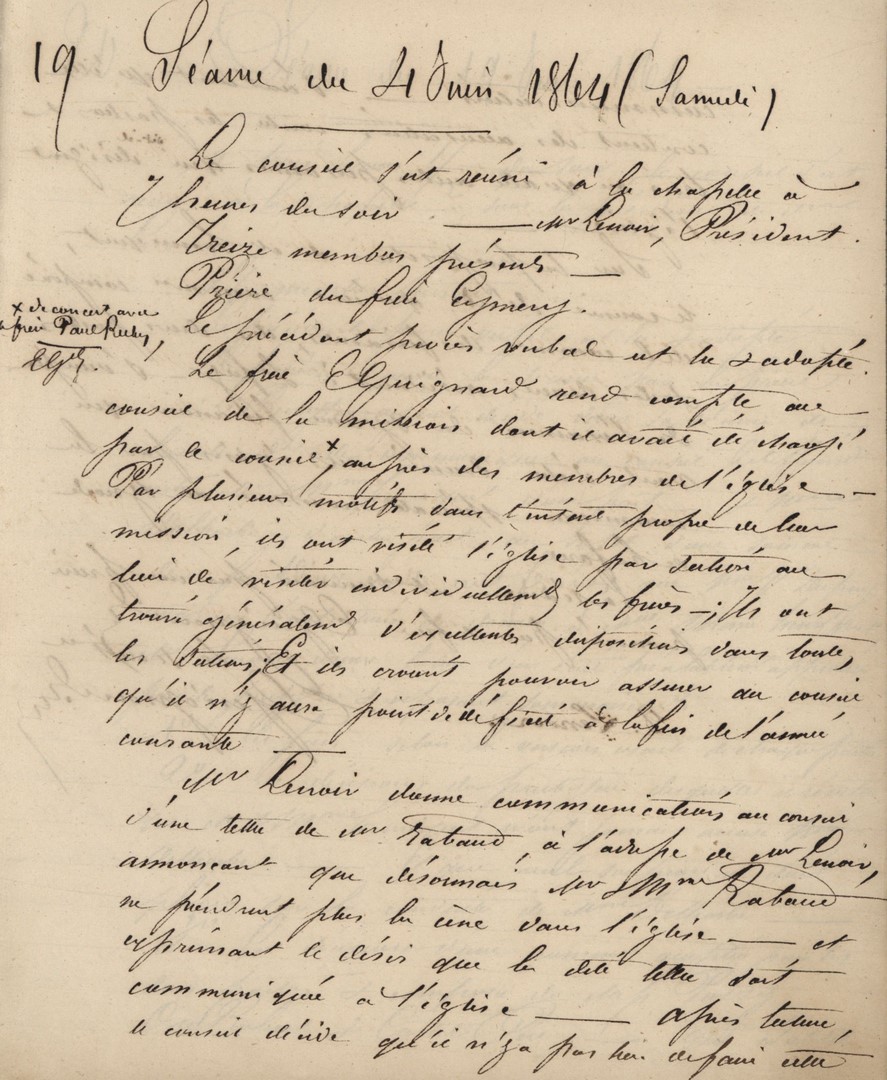 19 Séance du 4 Juin 1864 (Samedi)
Le conseil s'est réuni à la chapelle à
7 heures du soir — Mr Lenoir, Président.
Treize membres présents —
Prière du frère Eymery.
Le précédent procès verbal est lu & adopté.
x de concert avec
le frère Paul
EGd.
Le frère E Guignard rend compte au
conseil de la mission dont il avait été chargé
par le conseil x, auprès des membres de l'église —
Par plusieurs motifs dans l'intérêt propre de leur
mission, ils ont visité l'église par section au
lieu de visiter individuellement les frères —; Ils ont
trouvé généralemt d'excellentes dispositions dans toutes
les sections; Et ils croient pouvoir assurer au conseil
qu'il n'y aura point de déficit à la fin de l'année
courante —
Mr Lenoir donne communication au conseil
d'une lettre de Mr Rabaud, à l'adresse de Mr Lenoir,
annonçant que désormais Mr & Mme Rabaud
ne prendront plus la cène dans l'église — et
exprimant le désir que la dite lettre soit
communiquée à l'église — après lecture,
le conseil décide qu'il n'y a pas lieu de faire cette